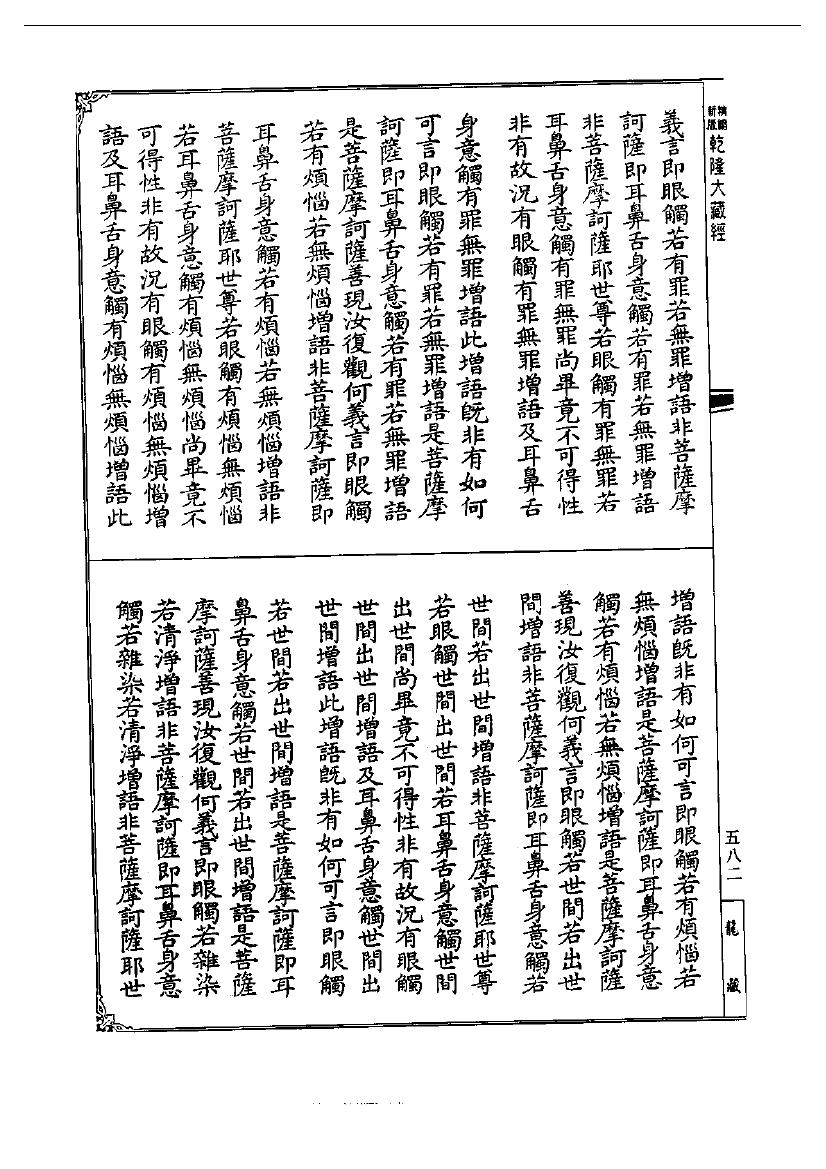 精緻
新版
乾隆大藏經
義言即眼觸若有罪若無罪增語非菩薩摩
訶薩即耳鼻舌身意觸若有罪若無罪增語
非菩薩摩訶薩耶世尊若眼觸有罪無罪若
耳鼻舌身意觸有罪無罪尚畢竟不可得性
非有故況有眼觸有罪無罪增語及耳鼻舌
身意觸有罪無罪增語此增語既非有如何
可言即眼觸若有罪若無罪增語是菩薩摩
訶薩即耳鼻舌身意觸若有罪若無罪增語
是菩薩摩訶薩善現汝復觀何義言即眼觸
若有煩惱若無煩惱增語非菩薩摩訶薩即
耳鼻舌身意觸若有煩惱若無煩惱增語非
菩薩摩訶薩耶世尊若眼觸有煩惱無煩惱
若耳鼻舌身意觸有煩惱無煩惱尚畢竟不
可得性非有故況有眼觸有煩惱無煩惱增
語及耳鼻舌身意觸有煩惱無煩惱增語此
增語既非有如何可言即眼觸若有煩惱若
無煩惱增語是菩薩摩訶薩即耳鼻舌身意
觸若有煩惱若無煩惱增語是菩薩摩訶薩
善現汝復觀何義言即眼觸若世間若出世
間增語非菩薩摩訶薩即耳鼻舌身意觸若
世間若出世間增語非菩薩摩訶薩耶世尊
若眼觸世間出世間若耳鼻舌身意觸世間
出世間尚畢竟不可得性非有故況有眼觸
世間出世間增語及耳鼻舌身意觸世間出
世間增語此增語既非有如何可言即眼觸
若世間若出世間增語是菩薩摩訶薩即耳
鼻舌身意觸若世間若出世間增語是菩薩
摩訶薩善現汝復觀何義言即眼觸若雜染
若清淨增語非菩薩摩訶薩即耳鼻舌身意
觸若雜染若清淨增語非菩薩摩訶薩耶世
五八二
龍藏